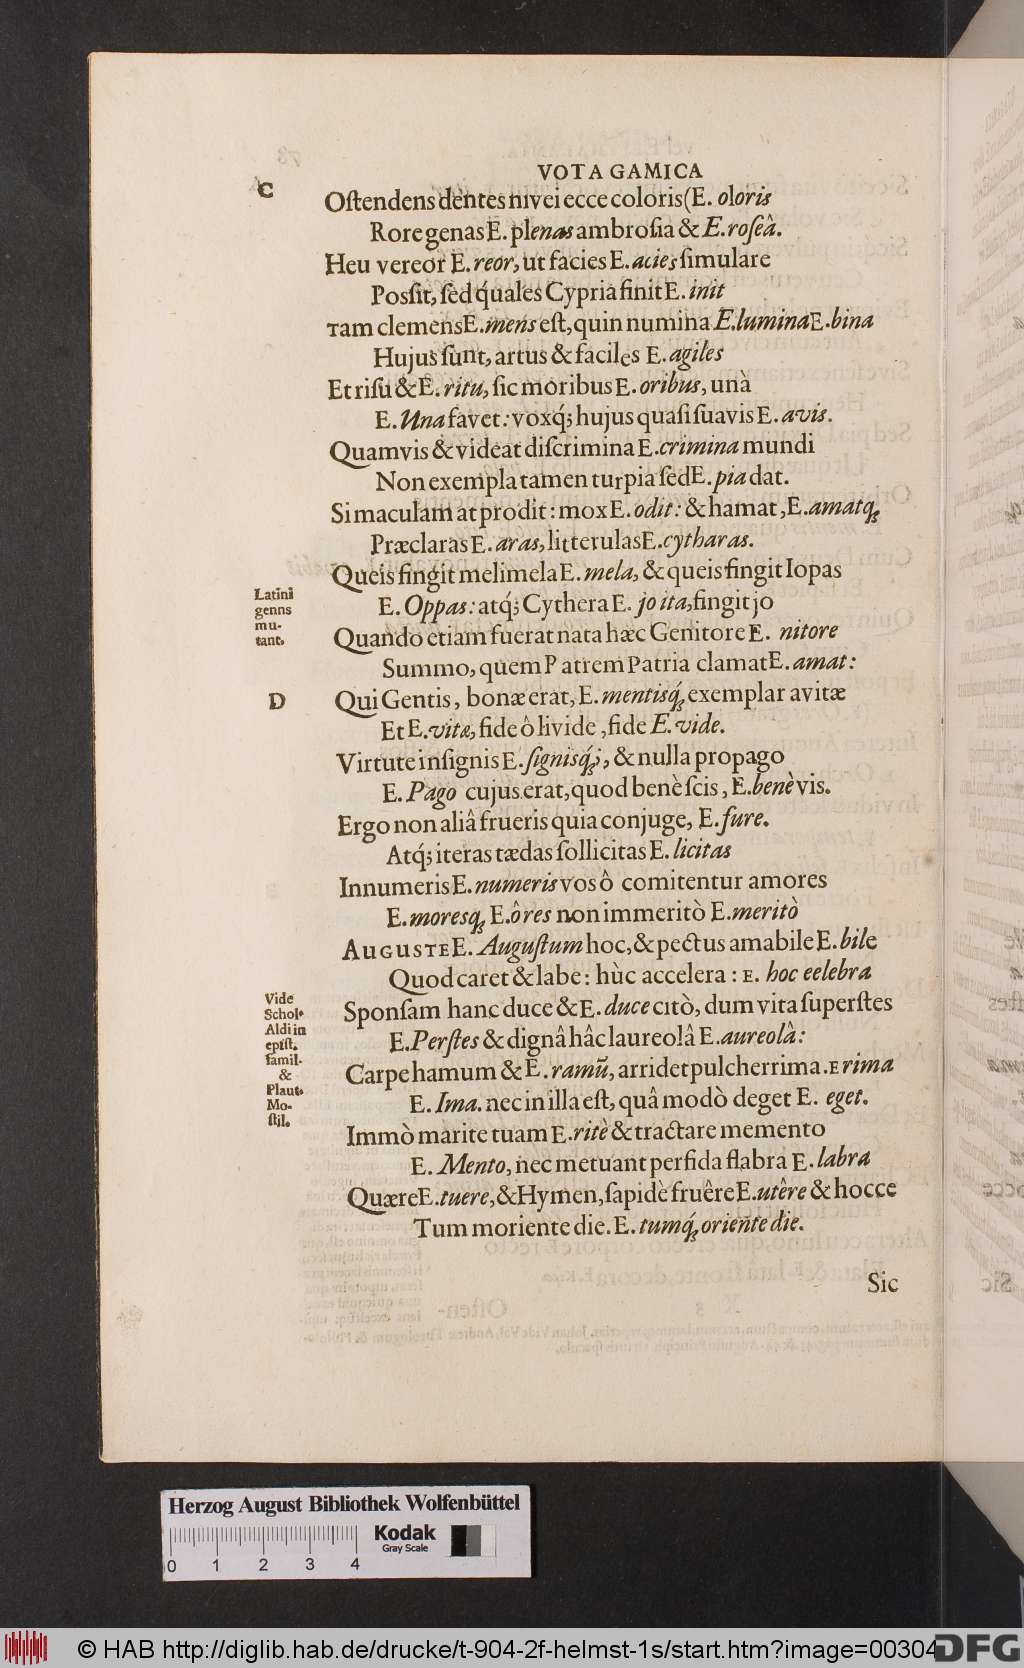 VOTA GAMICA
C
Oſtendens dentes nivei ecce coloris (E. oloris
Rore genas E. plenas ambroſia & E. roſeâ.
Heu vereor E. reor, ut facies E. acies ſimulare
Poſſit, ſed q́uales Cypria finit E. init
Tam clemens E. mens eſt, quin numina E. lumina E. bina
Hujus ſunt, artus & faciles E. agiles
Et riſu & E. ritu, ſic moribus E. oribus, unà
E. Una favet: voxq́; hujus quaſi ſuavis E. avis.
Quamvis & videat diſcrimina E. crimina mundi
Non exempla tamen turpia ſed E. pia dat.
Si maculam at prodit: mox E. odit: & hamat, E. amatq;
Præclaras E. aras, litterulas E. cytharas.
Queis fingit melimela E. mela, & queis fingit Iopas
E. Oppas: atq́; Cythera E. jo ita, fingit jo
Latini
genns
mu-
tant.
Quando etiam fuerat nata hæc Genitore E. nitore
Summo, quem Patrem Patria clamat E. amat:
D
Qui Gentis, bonæ erat, E. mentisq́; exemplar avitæ
Et E. vitæ, fide ô livide, fide E. vide.
Virtute inſignis E. ſignisq́;, & nulla propago
E. Pago cujus erat, quod benè ſcis, E. benè vis.
Ergo non aliâ frueris quia conjuge, E. fure.
Atq́; iteras tædas ſollicitas E. licitas
Innumeris E. numeris vos ô comitentur amores
E. moresq; E. ôres non immeritò E. meritò
AUGUSTE E. Auguſtum hoc, & pectus amabile E. bile
Quod caret & labe: hùc accelera: E. hoc eelebra
Vide
Schol.
Aldi in
epiſt.
famil.
&
Plaut.
Mo-
ſtil.
Sponſam hanc duce & E. duce citò, dum vita ſuperſtes
E. Perſtes & dignâ hâc laureolâ E. aureolâ:
Carpe hamum & E. ramũ, arridet pulcherrima. E rima
E. Ima. nec in illa eſt, quâ modò deget E. eget.
Immò marite tuam E. ritè & tractare memento
E. Mento, nec metuant perfida flabra E. labra
Quære E. tuere, & Hymen, ſapidè fruêre E. utêre & hocce
Tum moriente die. E. tumq́; oriente die.
Sic
Herzog August Bibliothek Wolfenbüttel
Kodak
Gray Scale
0 1 2 3 4
© HAB http://diglib.hab.de/drucke/t-904-2f-helmst-1s/start.htm?image=00304
DFG